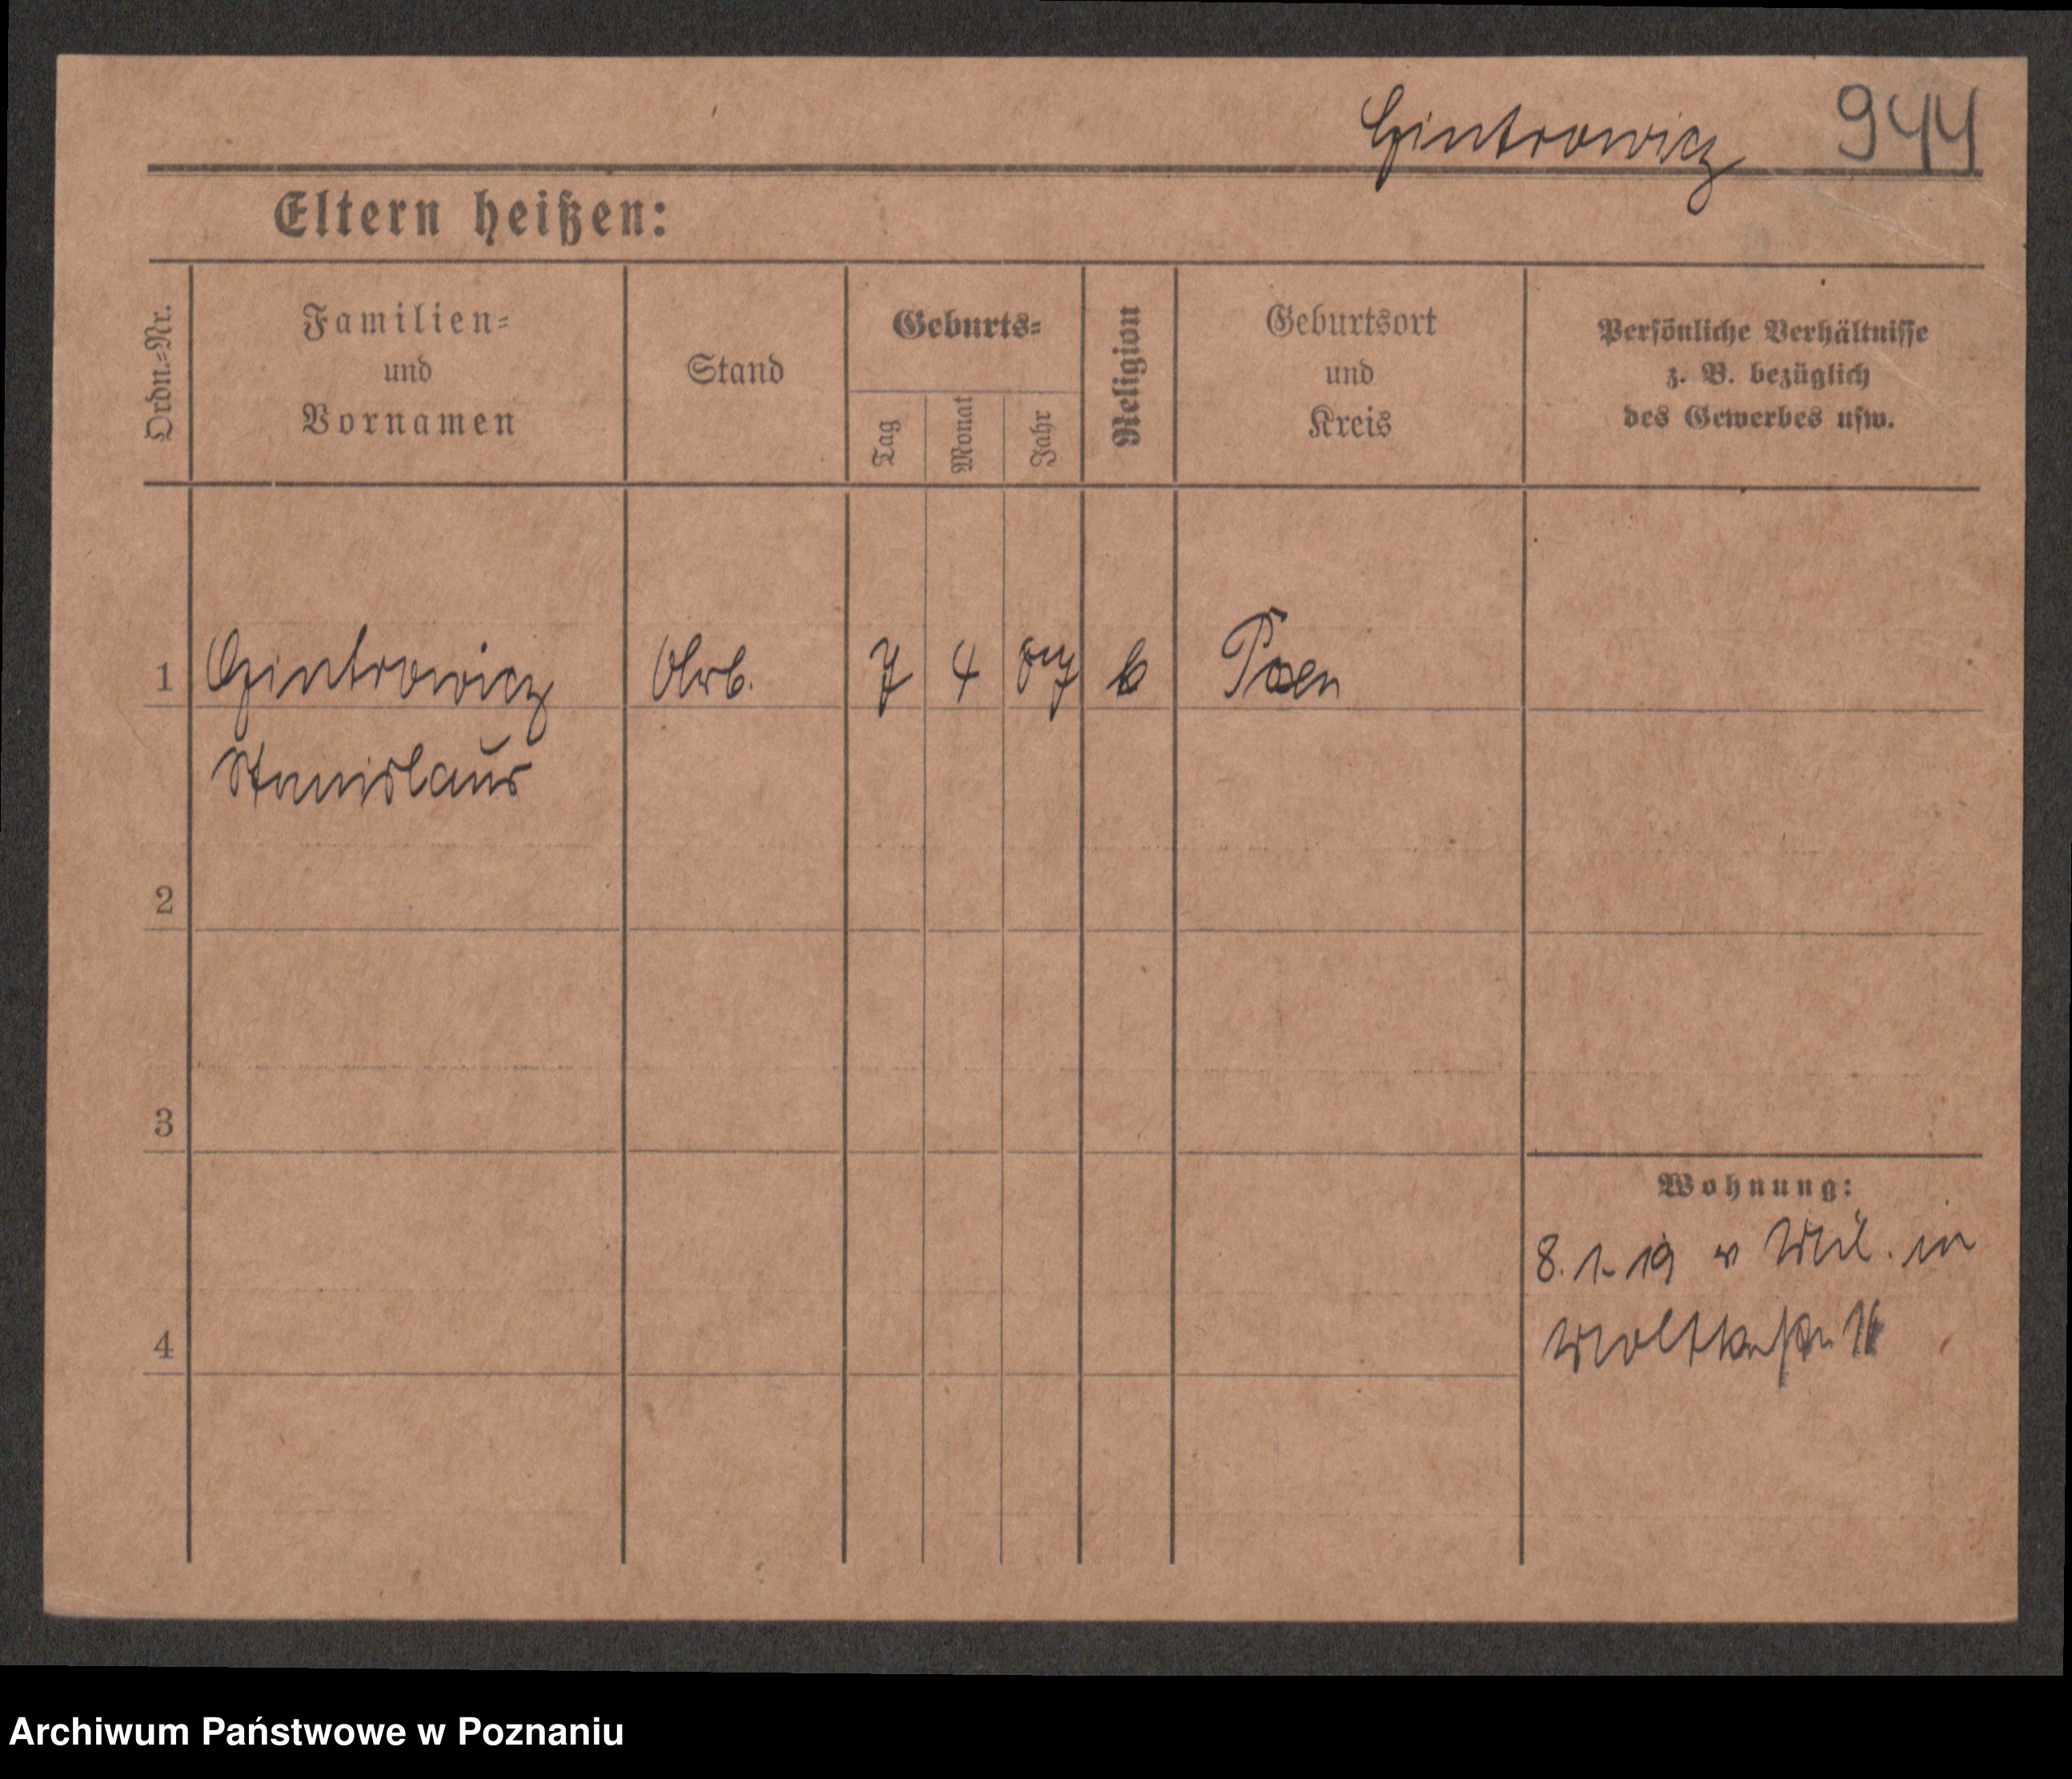 Gintrowicz 944
Eltern heißen:
Ordn.=Nr.
Familien=
und
Vornamen
Stand
Geburts=
Tag
Monat
Jahr
Religion
Geburtsort
und
Kreis
Persönliche Verhältnisse
z. B. bezüglich
des Gewerbes usw.
1 Gintrowicz Arb. 7 4 Posen
Stanislaus
2
3
4
Wohnung:
8. 1. 19 v Mil. in
Archiwum Państwowe w Poznaniu